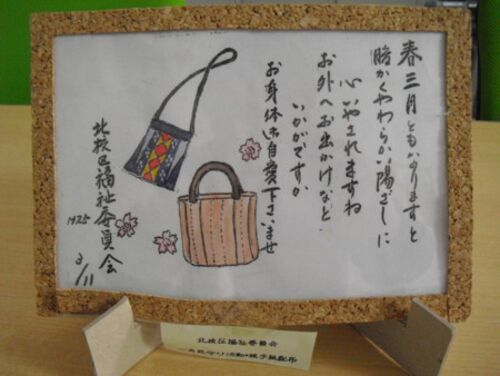 春三月ともいりますと
暖かくやわらかい陽ざしに
心いやされますね
お外へお出かけなど
いかがですか
お身体御自愛下さいませ
北校区福祉委員会
H25
3/11
北校区福祉委員会